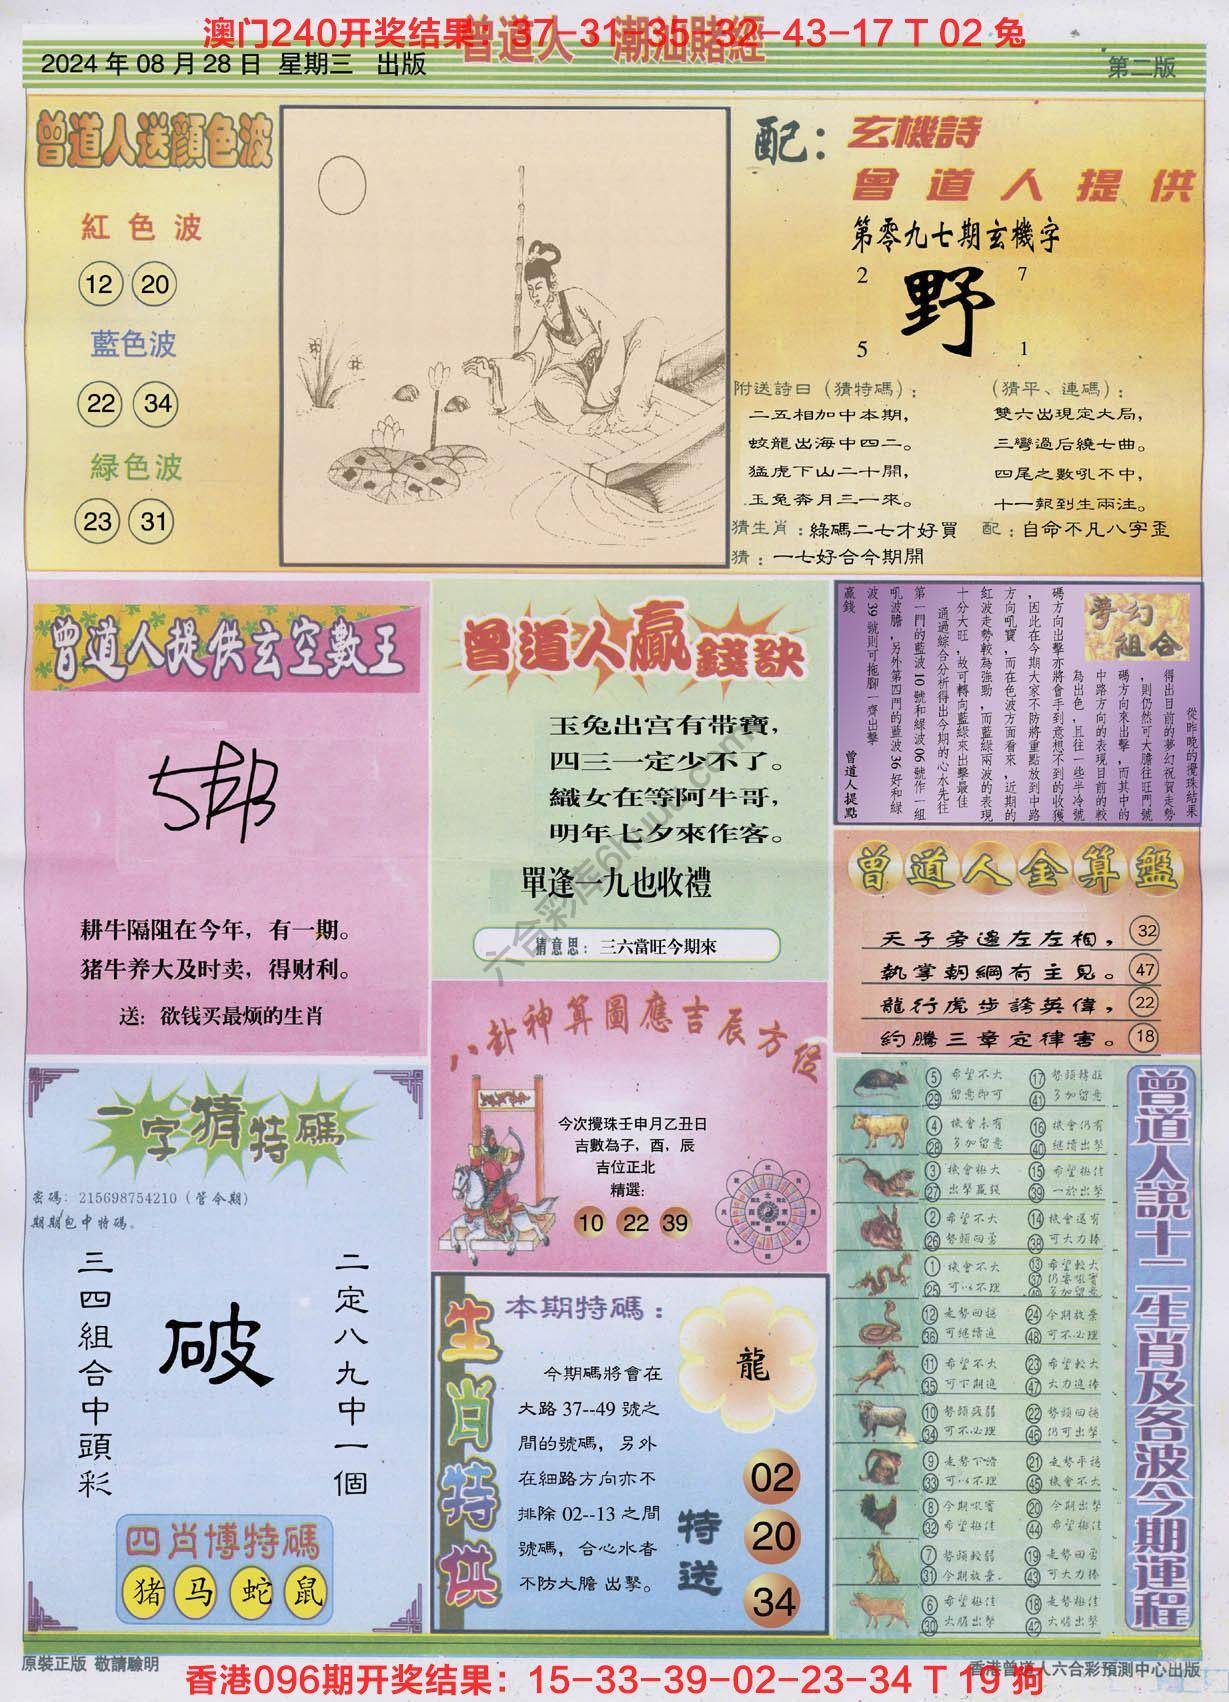 澳门240开奖结果：37-31-35-32-43-17 T 02 兔
曾道人 潮汕賭經
2024 年 08 月 28 日 星期三 出版
第二版
曾道人送顏色波
紅色波
12 20
藍色波
22 34
緑色波
23 31
配：
玄機詩
曾道人提供
第零九七期玄機字
2 7
野
5 1
附送詩曰（猜特碼）：
二五相加中本期，
蛟龍出海中四二。
猛虎下山二十開，
玉兔奔月三一來。
（猜平、連碼）：
雙六出現定大局，
三彎過后繞七曲。
四尾之數吼不中，
十一報到生兩注。
猜生肖：綠碼二七才好買
配：自命不凡八字歪
猜：一七好合今期開
曾道人提供玄空數王
耕牛隔阻在今年，有一期。
猪牛养大及时卖，得财利。
送：欲钱买最烦的生肖
曾道人贏錢訣
玉兔出宫有带寶，
四三一定少不了。
織女在等阿牛哥，
明年七夕來作客。
單逢一九也收禮
猜意思：三六當旺今期來
夢幻組合
從昨晚的攪珠結果
得出目前的夢幻祝賀走勢
，則仍然可大膽往旺門號
碼方向來出擊，而其中的
中路方向的表現目前的較
為出色，且往一些半冷號
碼方向出擊亦將會手到意想不到的收獲
，因此在今期大家不防將重點放到中路
方向吼寶，而在色波方面看來，近期的
紅波走勢較為強勁，而藍綠兩波的表現
十分大旺，故可轉向藍綠來出擊最佳
通過綜合分析得出今期的心水先往
第一門的藍波 10 號和綠波 06 號作一組
吼波膽，另外第四門的藍波 36 好和綠
波 39 號則可拖腳一齊出擊
贏錢
曾道人提點
曾道人金算盤
天子旁邊左左相， 32
執掌朝綱有主見。 47
龍行虎步誇英偉， 22
約騰三章定律害。 18
八卦神算圖應吉辰方位
今次攪珠壬申月乙丑日
吉數為子，酉，辰
吉位正北
精選：
10 22 39
一字猜特碼
密碼：215698754210（管今期）
期期包中特碼。
三四組合中頭彩
破
二定八九中一個
四肖博特碼
猪 马 蛇 鼠
生肖特供
本期特碼：
龍
今期碼將會在
大路 37--49 號之
間的號碼，另外
在細路方向亦不
排除 02--13 之間
號碼，合心水者
不防大膽 出擊。
特送
02
20
34
曾道人説十二生肖及各波今期運程
5 希望不大 17 勢頭轉旺
29 留意即可 41 多加留意
4 機會未有 16 機會仍有
28 多加留意 40 繼續出擊
3 機會極大 15 希望極佳
27 出擊贏錢 39 一於出擊
2 希望不大 14 機會還有
26 勢頭回勇 38 可大力捧
1 機會不大 13 希望較大
25 可以不理 37 仍要吼實
49 多加留意
12 走勢回穩 24 今期放棄
36 可繼續追 48 可不必理
11 希望不大 23 希望較大
35 可下期追 47 大力追捧
10 勢頭疲弱 22 勢頭回穩
34 可不必理 46 仍可出擊
9 走勢下滑 21 走勢平穩
33 可以不理 45 機會不大
8 今期吼實 20 今期出擊
32 希望極佳 44 希望極佳
7 勢頭較弱 19 走勢回勇
31 今期放棄. 43 可大力捧
6 希望極佳 18 走勢極佳
30 大膽出擊 42 大膽出擊
六合彩库6huu.com
原裝正版 敬請驗明
香港曾道人六合彩預測中心出版
香港096期开奖结果：15-33-39-02-23-34 T 19 狗